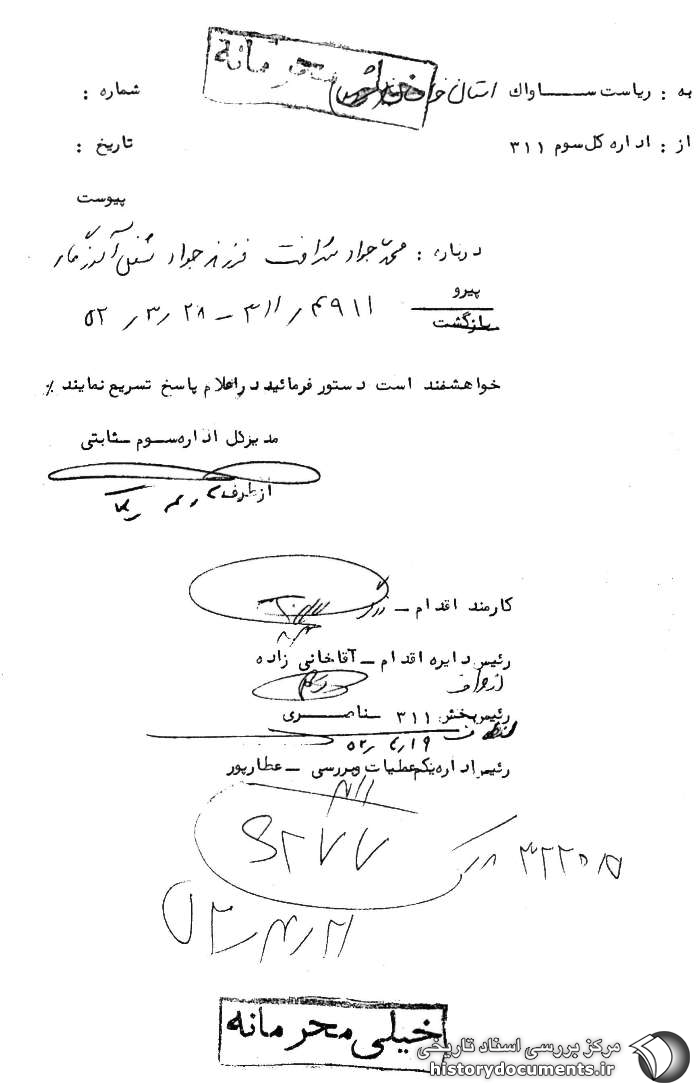 خیلی محرمانه
به : ریاست ساواک استان
شماره :
از : اداره کل سوم ۳۱۱
تاریخ :
پیوست
درباره : محمد جواد شرافت فرزند جواد شغل آموزگار
پیرو
بازگشت
۴۹۱۱ / ۳۱۱ - ۲۸ / ۳ / ۵۲
خواهشمند است دستور فرمائید در اعلام پاسخ تسریع نمایند ٪
مدیرکل اداره سوم - ثابتی
از طرف
کارمند اقدام -
رئیس دایره اقدام - آقاخانی زاده
از طرف
رئیس بخش ۳۱۱ - ناصری
۵۲/۴/۱۹
رئیس اداره یکم عملیات و بررسی - عطارپور
۵۲/۴/۲۱
خیلی محرمانه
مرکز بررسی اسناد تاریخی
historydocuments.ir